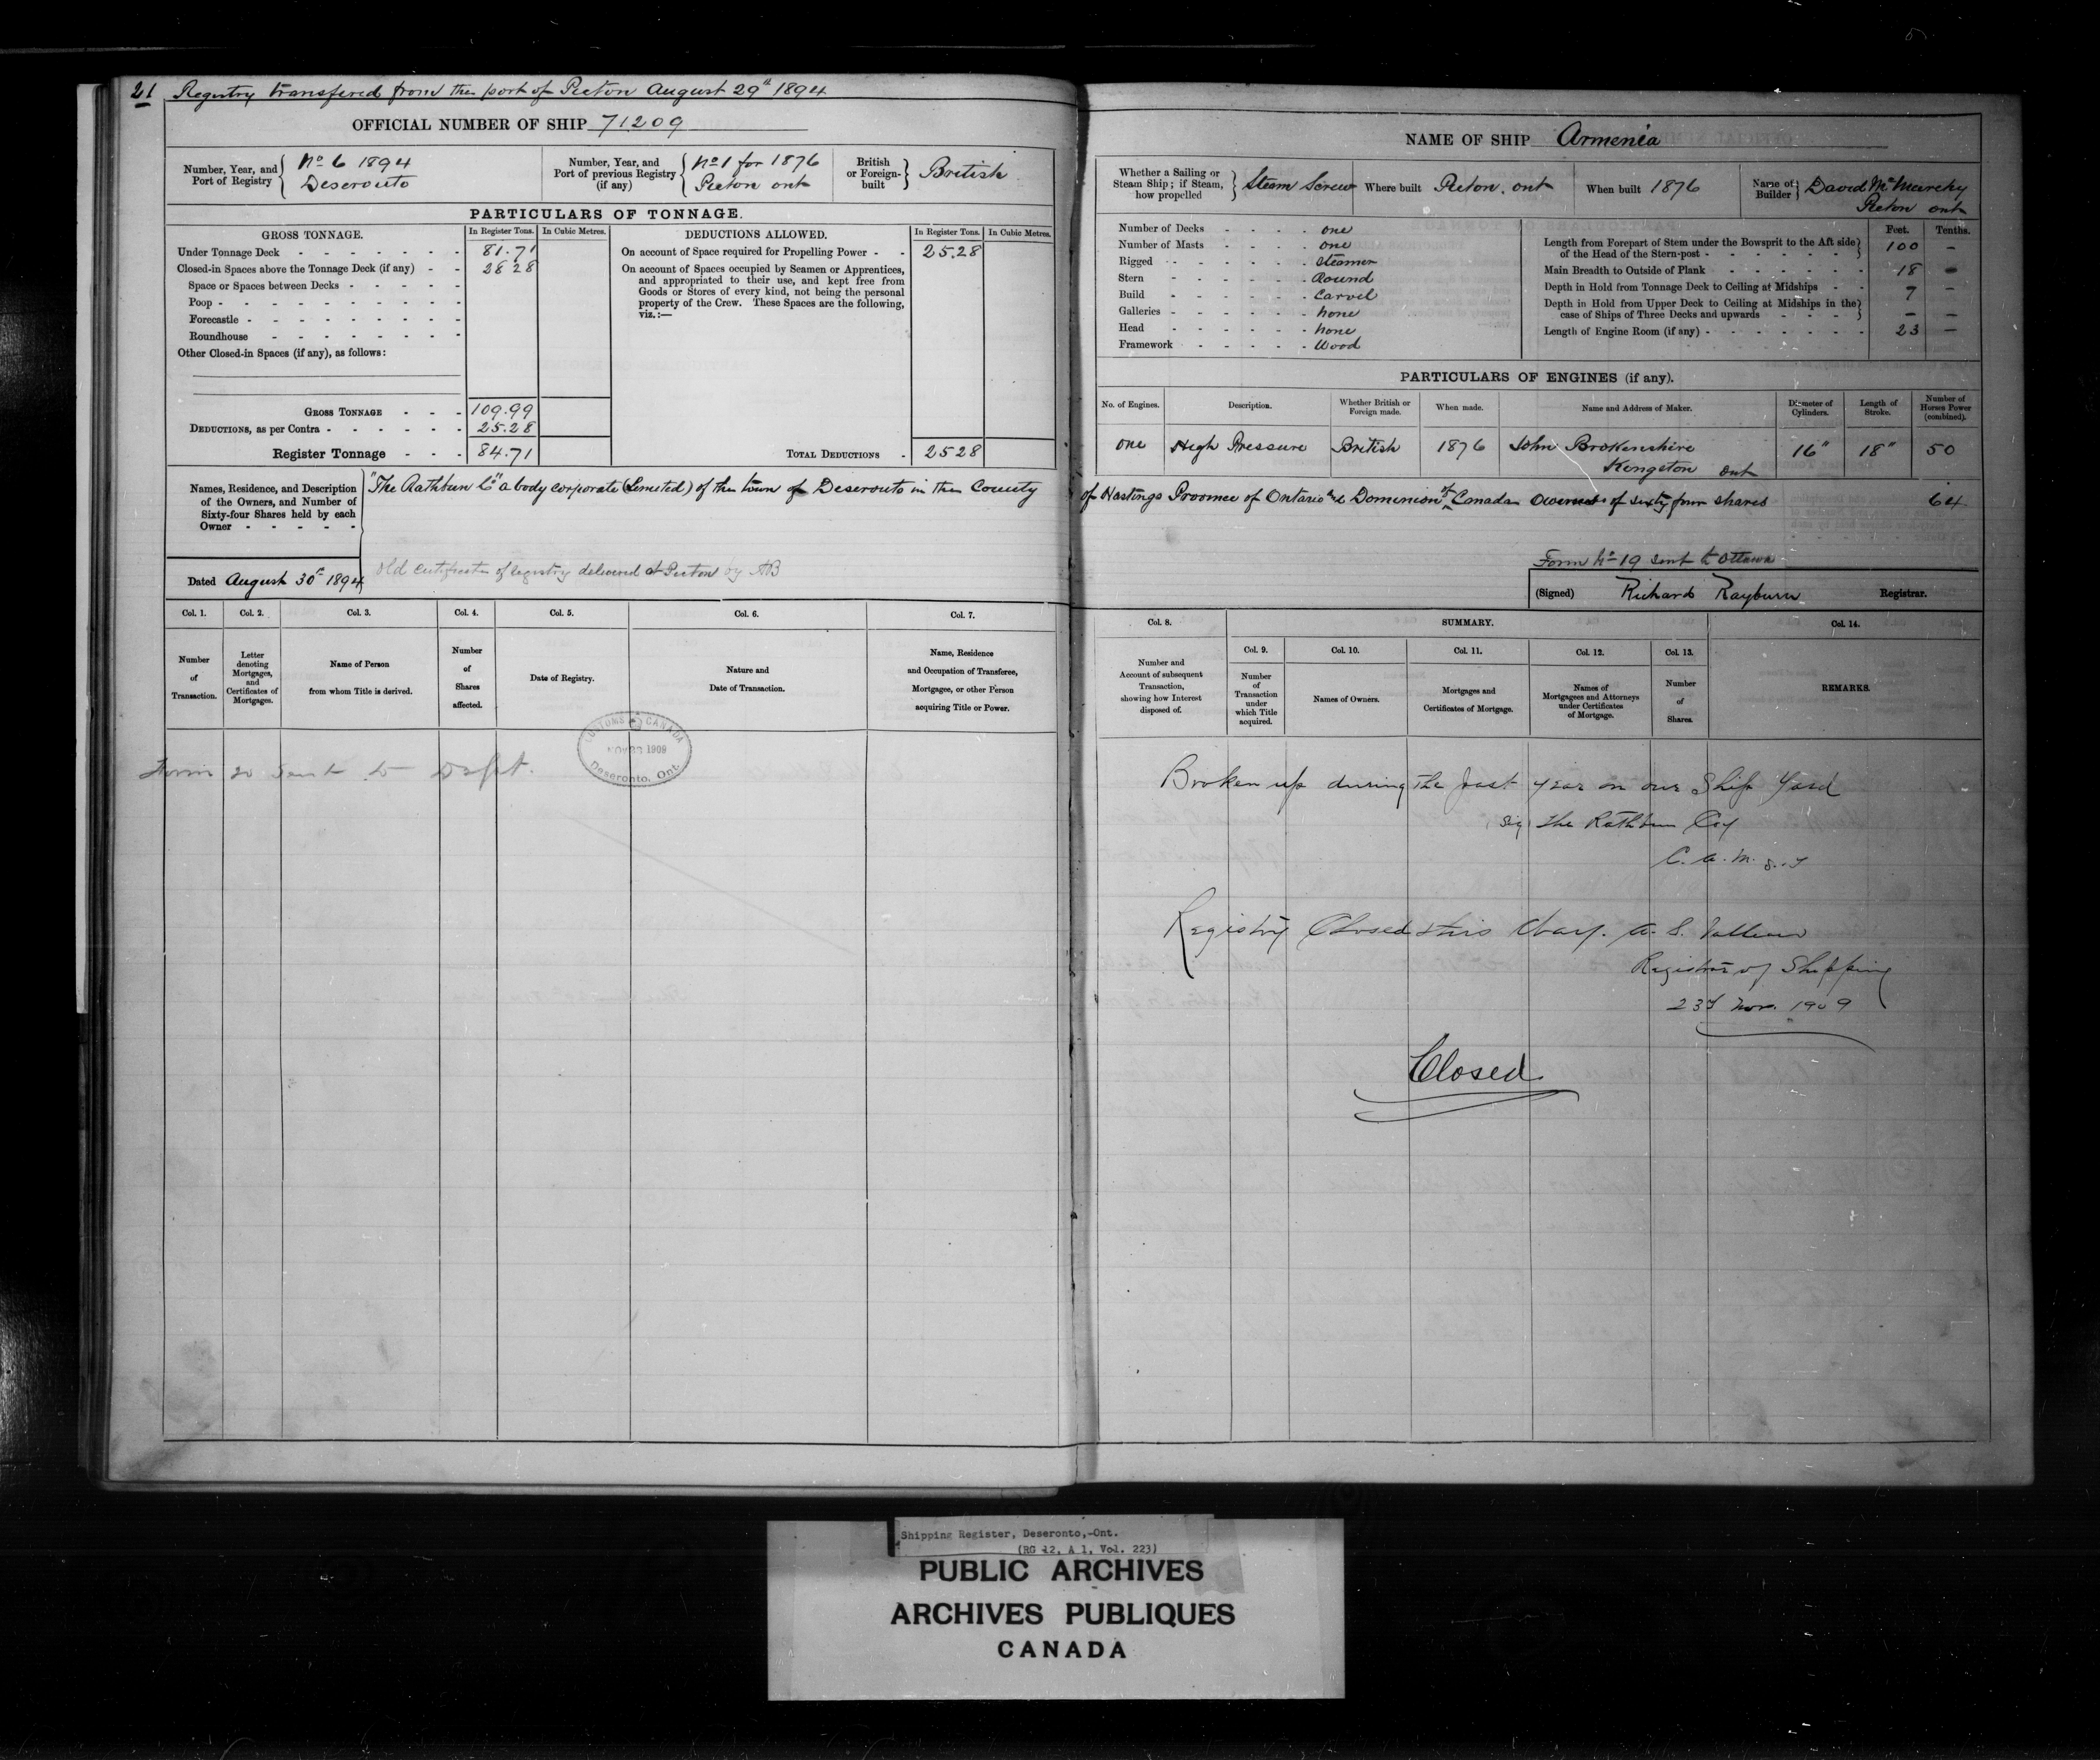 21 Registry transfered from the port of Picton August 29th 1894
OFFICIAL NUMBER OF SHIP 71209
Number, Year, and Port of Registry No 6 1894 Deseronto
Number, Year, and Port of previous Registry (if any) No 1 for 1876 Picton ont
British or Foreign-built British
PARTICULARS OF TONNAGE.
GROSS TONNAGE. In Register Tons. In Cubic Metres.
Under Tonnage Deck 81.71
Closed-in Spaces above the Tonnage Deck (if any) 28 28
Space or Spaces between Decks
Poop
Forecastle
Roundhouse
Other Closed-in Spaces (if any), as follows:
GROSS TONNAGE 109.99
DEDUCTIONS, as per Contra 25.28
Register Tonnage 84.71
DEDUCTIONS ALLOWED. In Register Tons. In Cubic Metres.
On account of Space required for Propelling Power 25.28
On account of Spaces occupied by Seamen or Apprentices,
and appropriated to their use, and kept free from
Goods or Stores of every kind, not being the personal
property of the Crew. These Spaces are the following,
viz.:—
TOTAL DEDUCTIONS 25 28
Names, Residence, and Description
of the Owners, and Number of
Sixty-four Shares held by each
Owner
"The Rathbun Co" a body corporate (Limited) of the town of Deseronto in the County
Dated August 30th 1894
Old certificate of registry delivered at Picton by AB
Col. 1. Col. 2. Col. 3. Col. 4. Col. 5. Col. 6. Col. 7.
Number of Transaction.
Letter denoting Mortgages, and Certificates of Mortgages.
Name of Person from whom Title is derived.
Number of Shares affected.
Date of Registry.
Nature and Date of Transaction.
Name, Residence and Occupation of Transferee, Mortgagee, or other Person acquiring Title or Power.
CUSTOMS CANADA
NOV 23 1909
Deseronto, Ont.
Form 20 sent to Dept.
NAME OF SHIP Armenia
Whether a Sailing or Steam Ship; if Steam, how propelled Steam Screw
Where built Picton, ont
When built 1876
Name of Builder David McMurchy Picton ont
Number of Decks one
Number of Masts one
Rigged Steamer
Stern Round
Build Carvel
Galleries none
Head none
Framework Wood
Feet. Tenths.
Length from Forepart of Stem under the Bowsprit to the Aft side of the Head of the Stern-post 100 –
Main Breadth to Outside of Plank 18 –
Depth in Hold from Tonnage Deck to Ceiling at Midships 7 –
Depth in Hold from Upper Deck to Ceiling at Midships in the case of Ships of Three Decks and upwards – –
Length of Engine Room (if any) 23 –
PARTICULARS OF ENGINES (if any).
No. of Engines. Description. Whether British or Foreign made. When made. Name and Address of Maker. Diameter of Cylinders. Length of Stroke. Number of Horses Power (combined).
one High Pressure British 1876 John Brokenshire Kingston ont 16" 18" 50
of Hastings Province of Ontario and Dominion of Canada Owners of sixty four shares 64
Form No 19 sent to Ottawa
(Signed) Richard Rayburn Registrar.
Col. 8. SUMMARY. Col. 14.
Col. 9. Col. 10. Col. 11. Col. 12. Col. 13.
Number and Account of subsequent Transaction, showing how Interest disposed of.
Number of Transaction under which Title acquired.
Names of Owners.
Mortgages and Certificates of Mortgage.
Names of Mortgagees and Attorneys under Certificates of Mortgage.
Number of Shares.
REMARKS.
Broken up during the past year on our Ship Yard
Sig the Rathbun Coy
C. A. M.
Registry Closed this
Registrar of Shipping
23d Nov. 1909
Closed
Shipping Register, Deseronto,-Ont.
(RG 12, A 1, Vol. 223)
PUBLIC ARCHIVES
ARCHIVES PUBLIQUES
CANADA